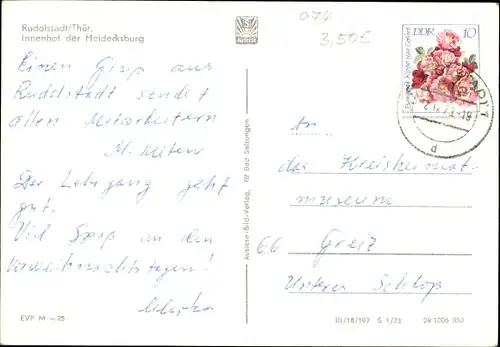 Rudolstadt/Thür.
Innenhof der Heidecksburg
Einen Gruß aus
Rudolstadt sendet
allen Mitarbeitern
M.
Der Lehrgang geht
gut.
Viel Spaß an den
Vorweihnachtstagen!
EVP M -.25
Auslese-Bild-Verlag, 82 Bad Salzungen
074
3,50€
DDR 10
An
das Kreisheimat-
museum
66 Greiz
Unteres Schloß
III/18/197 S 1/73 09 1006 053